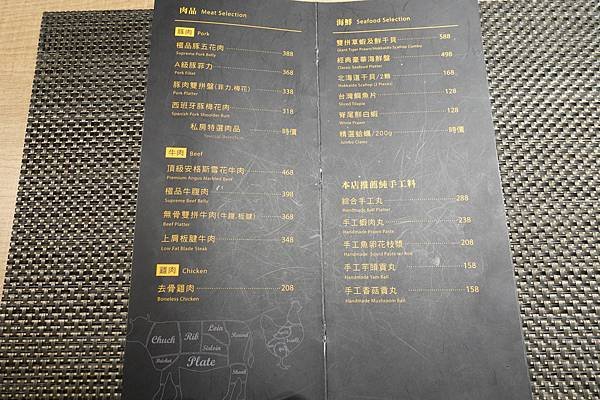 肉品 Meat Selection
豚肉 Pork
極品豚五花肉 388
Supreme Pork Belly
A級豚菲力 368
Pork Fillet
豚肉雙拼盤(菲力,梅花) 338
Pork Platter
西班牙豚梅花肉 318
Spanish Pork Shoulder Butt
私房特選肉品 時價
Special Selection
牛肉 Beef
頂級安格斯雪花牛肉 468
Premium Angus Marbled Beef
極品牛腹肉 398
Supreme Beef Belly
無骨雙拼牛肉(牛腹,板腱) 368
Beef Platter
上肩板腱牛肉 348
Low Fat Blade Steak
雞肉 Chicken
去骨雞肉 208
Boneless Chicken
Chuck
Rib
Loin
Sirloin
Round
Brisket
Plate
Shank
海鮮 Seafood Selection
雙拼草蝦及鮮干貝 588
Giant Tiger Prawn/Hokkaido Scallop Combo
經典豪華海鮮盤 498
Classic Seafood Platter
北海道干貝/2顆 168
Hokkaido Scallop (2 Pieces)
台灣鯛魚片 128
Sliced Tilapia
脊尾鮮白蝦 188
White Prawn
精選蛤蠣/200g 時價
Jumbo Clams
本店推薦純手工料
綜合手工丸 288
Handmade Ball Platter
手工蝦肉丸 238
Handmade Prawn Paste
手工魚卵花枝漿 208
Handmade Squid Paste w/ Roe
手工芋頭貢丸 158
Handmade Yam Ball
手工香菇貢丸 158
Handmade Mushroom Ball